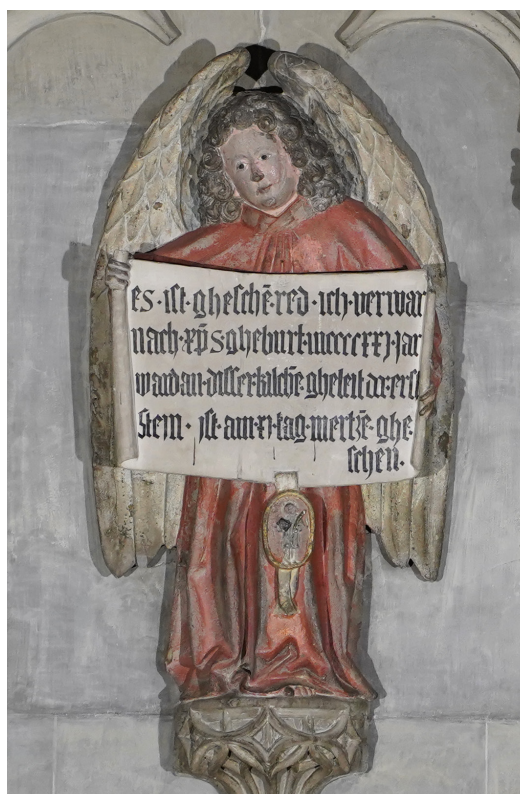 es · ist · gheschē · red · ich · verwar
nach · xp̄s · gheburt · mccccxxi · Jar
ward an · disser kilchē · gheleit der · erst
Stein · ist · am · xi · tag · mertzē · ghe
schen ·